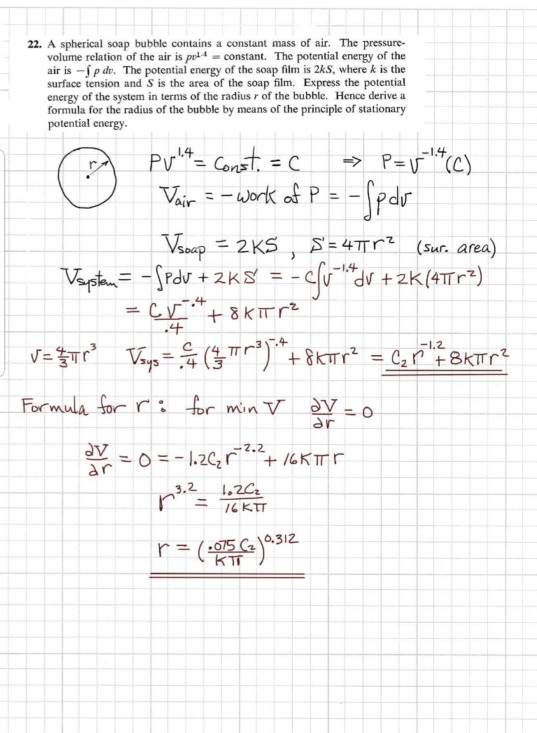 22. A spherical soap bubble contains a constant mass of air. The pressure-
volume relation of the air is pv^1.4 = constant. The potential energy of the
air is −∫p dv. The potential energy of the soap film is 2kS, where k is the
surface tension and S is the area of the soap film. Express the potential
energy of the system in terms of the radius r of the bubble. Hence derive a
formula for the radius of the bubble by means of the principle of stationary
potential energy.
r
Pv^1.4 = Const. = C ⇒ P = v^-1.4 (C)
V_air = -work of P = -∫pdv
V_soap = 2KS , S = 4πr² (sur. area)
V_system = -∫Pdv + 2KS = -C∫v^-1.4 dv + 2K(4πr²)
= C v^-.4 / .4 + 8Kπr²
v = 4/3 πr³ V_sys = C/.4 (4/3 πr³)^-.4 + 8Kπr² = C₂ r^-1.2 + 8Kπr²
Formula for r : for min V ∂V/∂r = 0
∂V/∂r = 0 = -1.2C₂r^-2.2 + 16Kπr
r^3.2 = 1.2C₂ / 16Kπ
r = (.075 C₂ / Kπ)^0.312